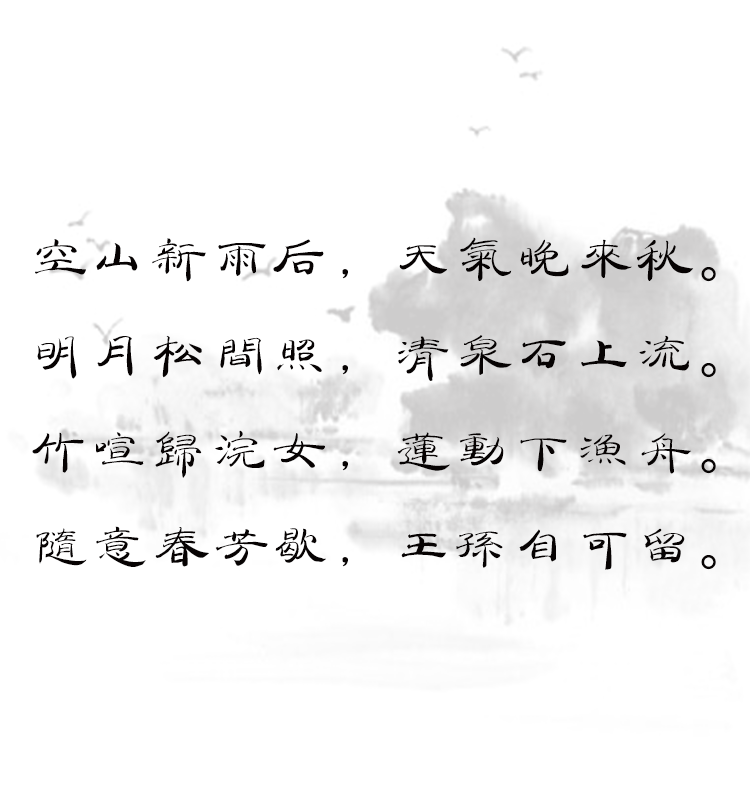 空山新雨后，天氣晚來秋。
明月松間照，清泉石上流。
竹喧歸浣女，蓮動下漁舟。
隨意春芳歇，王孫自可留。